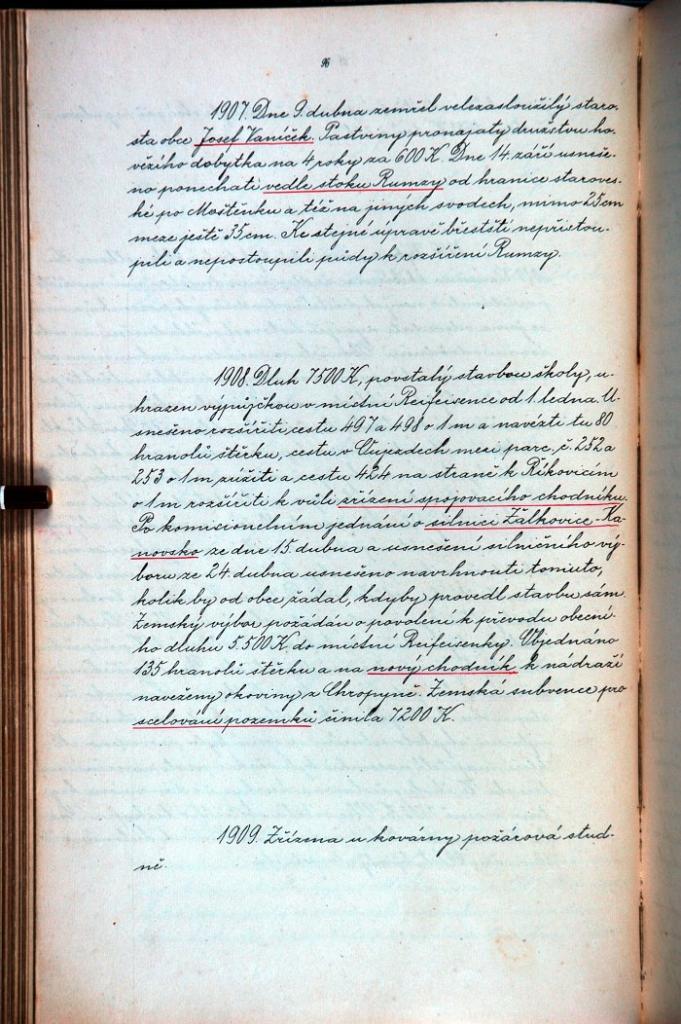 96
1907. Dne 9. dubna zemřel velezasloužilý staro-
sta obce Josef Vaníček. Pastviny pronajaty družstvu ho-
vězího dobytka na 4 roky za 600 K. Dne 14. září usneše-
no ponechati vedle stoku Rumzy od hranice staroves-
ké po Moštěnku a též na jiných svodech, mimo 25 cm
meze ještě 35 cm. Ke stejné úpravě břestští nepřistou-
pili a nepostoupili půdy k rozšíření Rumzy.
1908. Dluh 7500 K, povstalý stavbou školy, u-
hrazen výpůjčkou v místní Reifeisence od 1. ledna. U-
sneseno rozšířiti cestu 497 a 498 o 1 m a navézti tu 80
hranolů štěrku, cestu v Újezdech mezi parc. č. 252 a
253 o 1 m zúžiti a cestu 424 na straně k Říkovicím
o 1 m rozšířiti k vůli zřízení spojovacího chodníku.
Po komicionelním jednání o silnici Žalkovice - Ka-
novsko ze dne 15. dubna a usnešení silničního vý-
boru ze 24. dubna usnešeno navrhnouti tomuto,
kolik by od obce žádal, kdyby provedl stavbu sám.
Zemský výbor požádán o povolení k převodu obecní-
ho dluhu 5.500 K. do místní Reifeisenky. Objednáno
135 hranolů štěrku a na nový chodník k nádraží
navezeny okoviny z Chropyně. Zemská subvence pro
scelování pozemků činila 7200 K.
1909. Zřízena u kovárny požárová stud-
ně.